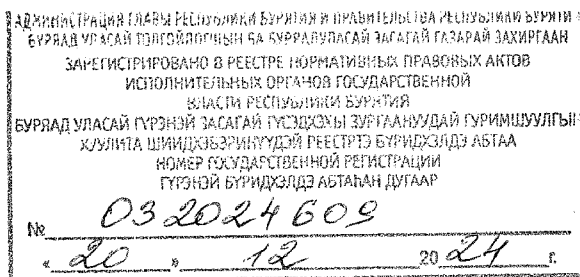 АДМИНИСТРАЦИЯ ГЛАВЫ РЕСПУБЛИКИ БУРЯТИЯ И ПРАВИТЕЛЬСТВА РЕСПУБЛИКИ БУРЯТИ
БУРЯАД УЛАСАЙ ТОЛГОЙЛОГШЫН БА БУРЯАД УЛАСАЙ ЗАСАГАЙ ГАЗАРАЙ ЗАХИРГААН
ЗАРЕГИСТРИРОВАНО В РЕЕСТРЕ НОРМАТИВНЫХ ПРАВОВЫХ АКТОВ
ИСПОЛНИТЕЛЬНЫХ ОРГАНОВ ГОСУДАРСТВЕННОЙ
ВЛАСТИ РЕСПУБЛИКИ БУРЯТИЯ
БУРЯАД УЛАСАЙ ГҮРЭНЭЙ ЗАСАГАЙ ГҮЙСЭДХЭХЫ ЗУРГААНУУДАЙ ГУРИМШУУЛГЫН
ХУУЛИТА ШИИДХЭБЭРИНҮҮДЭЙ РЕЕСТРТЭ БҮРИДХЭЛДЭ АБТАА
НОМЕР ГОСУДАРСТВЕННОЙ РЕГИСТРАЦИИ
ГҮРЭНЭЙ БҮРИДХЭЛДЭ АБТАҺАН ДУГААР
№ 032024609
« 20 » 12 20 24 г.